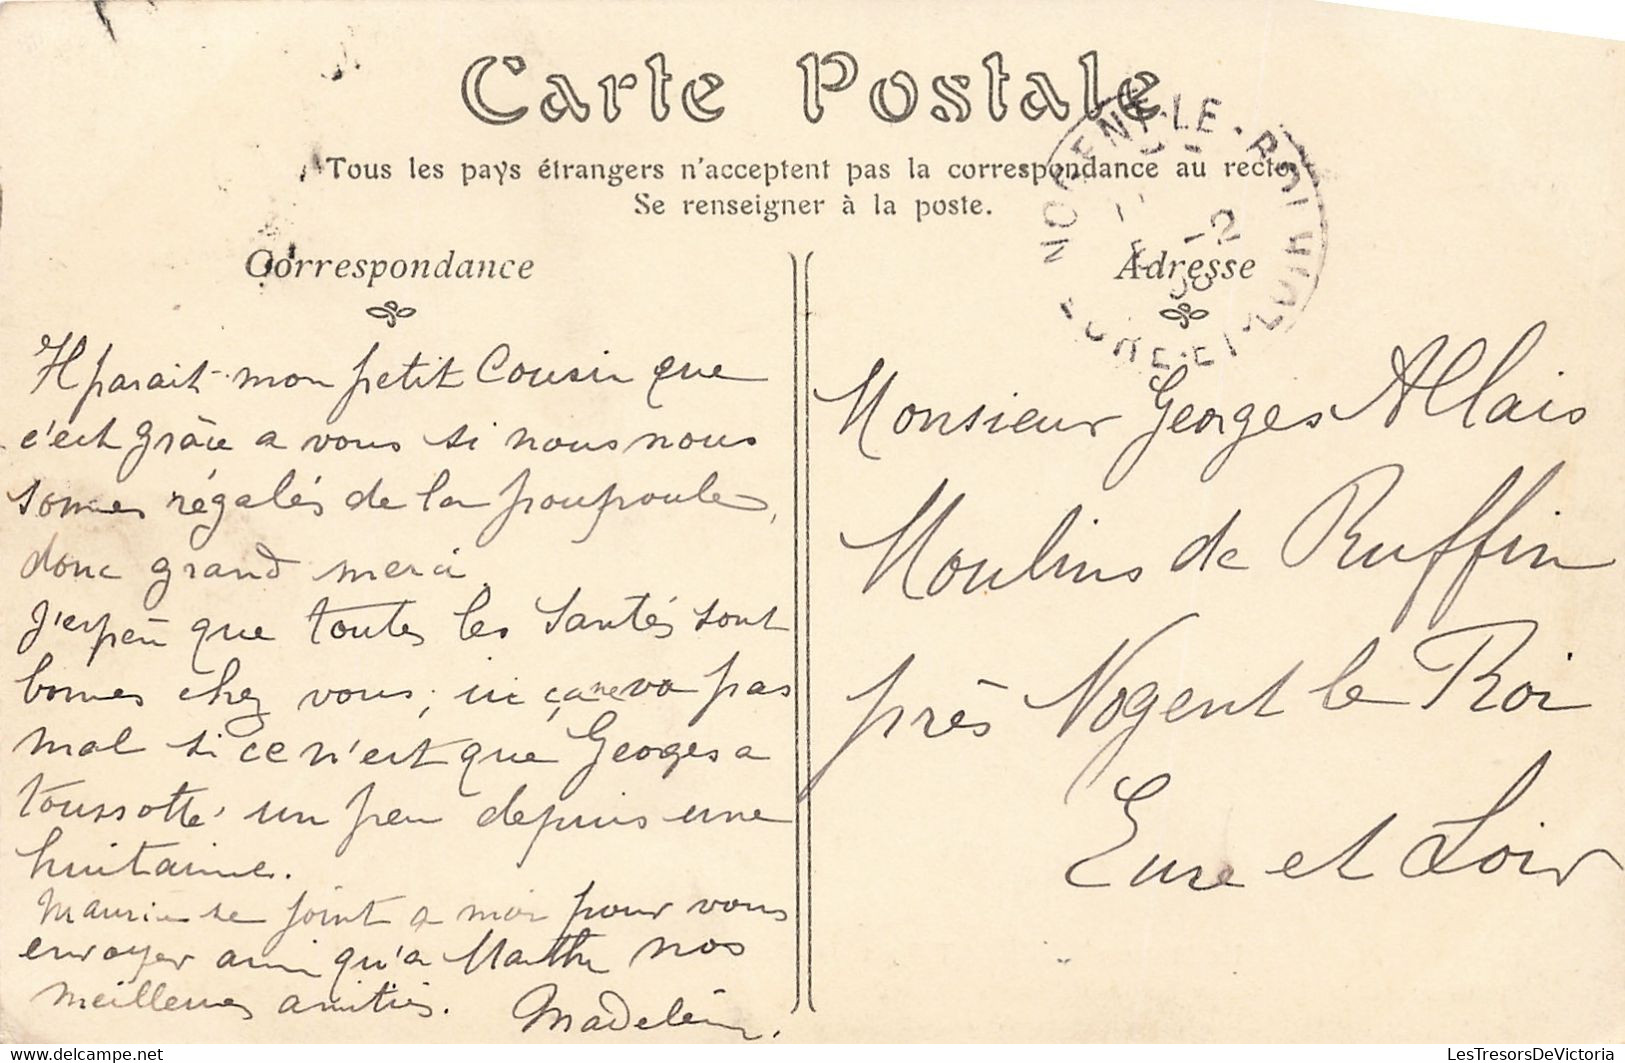 Carte Postale
Tous les pays étrangers n'acceptent pas la correspondance au recto
Se renseigner à la poste.
Correspondance
Il parait mon petit Cousin que
c'est grâce a vous si nous nous
somes régalés de la poupoule,
donc grand merci.
J'espère que toutes les Santés sont
bonnes chez vous, ici ça ne va pas
mal si ce n'est que Georges a
toussotté un peu depuis une
huitaine.
Maurice se joint a moi pour vous
envoyer ainsi qu'a Marthe nos
meilleures amitiés. Madeleine.
Adresse
Monsieur Georges Allais
Moulins de Ruffin
près Nogent le Roi
Eure et Loir
NOGENT-LE-ROI
EURE-ET-LOIR
-2
08
LesTresorsDeVictoria.com
LesTresorsDeVictoria